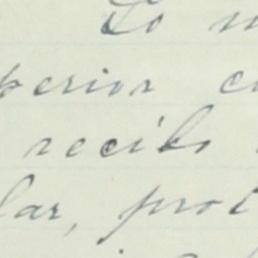 Lo
perior c
recibo
lar, prot